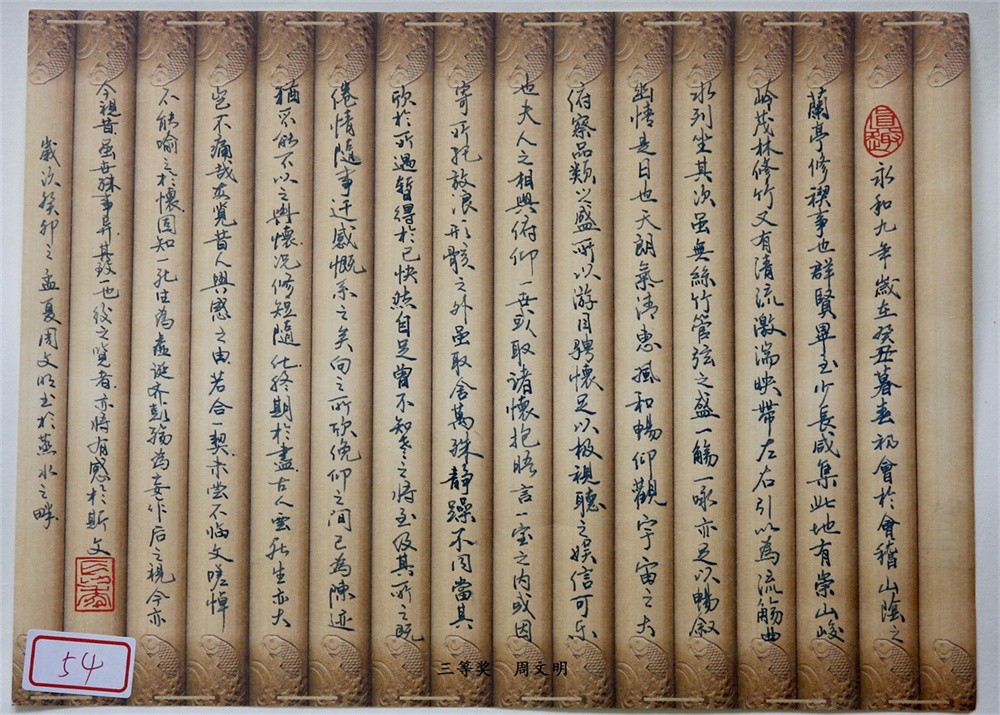 真趣
永和九年歲在癸丑暮春初會於會稽山陰之
蘭亭修禊事也群賢畢至少長咸集此地有崇山峻
岭茂林修竹又有清流激湍映帶左右引以為流觴曲
水列坐其次虽無絲竹管弦之盛一觴一咏亦足以暢叙
幽情是日也天朗氣清惠風和暢仰觀宇宙之大
俯察品類之盛所以游目騁懷足以极視聽之娱信可乐
也夫人之相與俯仰一世或取諸懷抱晤言一室之内或因
寄所托放浪形骸之外虽取舍萬殊静躁不同當其
欣於所遇暫得於己快然自足曾不知老之將至及其所之既
倦情隨事迁感慨系之矣向之所欣俛仰之间已為陳迹
猶不能不以之興懷况修短隨化終期於盡古人雲死生亦大
岂不痛哉每览昔人興感之由若合一契未尝不临文嗟悼
不能喻之於懷固知一死生為虚诞齐彭殇為妄作后之視今亦
今視昔虽世殊事异其致一也後之覧者亦將有感於斯文
歲次癸卯之孟夏周文明书於燕水之畔
54
三等奖 周文明